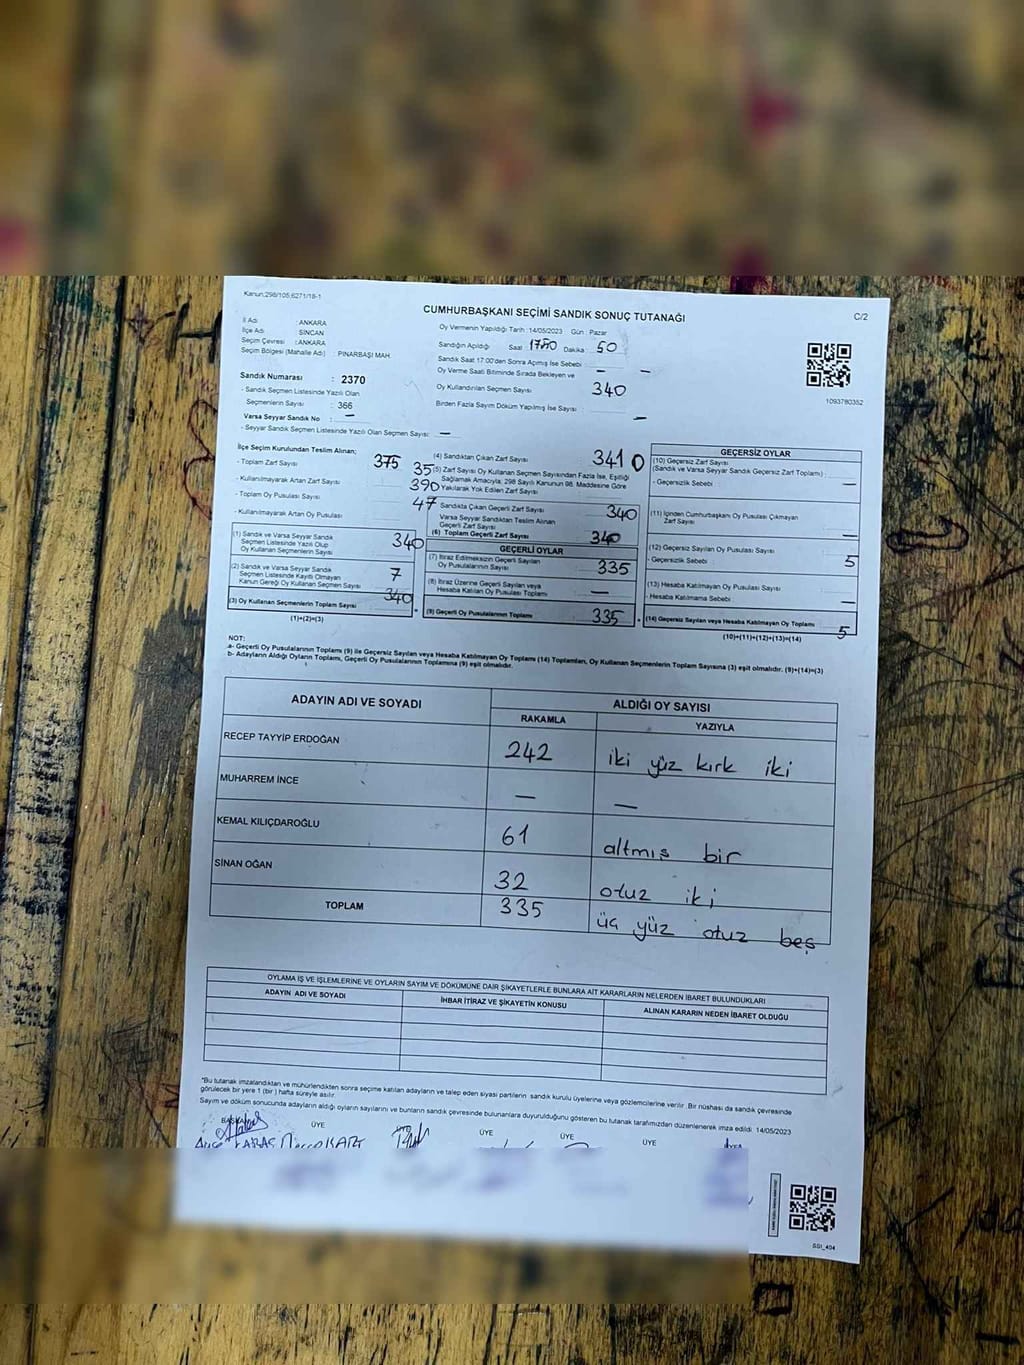 Kanun:298/105;6271/18-1
CUMHURBAŞKANI SEÇİMİ SANDIK SONUÇ TUTANAĞI
C/2
İl Adı : ANKARA
İlçe Adı : SİNCAN
Seçim Çevresi : ANKARA
Seçim Bölgesi (Mahalle Adı) : PINARBAŞI MAH.
Sandık Numarası : 2370
- Sandık Seçmen Listesinde Yazılı Olan
Seçmenlerin Sayısı : 366
Varsa Seyyar Sandık No : —
- Seyyar Sandık Seçmen Listesinde Yazılı Olan Seçmen Sayısı: —
Oy Vermenin Yapıldığı Tarih :14/05/2023 Gün : Pazar
Sandığın Açıldığı Saat Dakika 50
Sandık Saat 17:00'den Sonra Açılmış İse Sebebi : — —
Oy Verme Saati Bitiminde Sırada Bekleyen ve
Oy Kullandırılan Seçmen Sayısı 340
Birden Fazla Sayım Döküm Yapılmış İse Sayısı : —
1093780352
İlçe Seçim Kurulundan Teslim Alınan;
- Toplam Zarf Sayısı 375
- Kullanılmayarak Artan Zarf Sayısı 35
- Toplam Oy Pusulası Sayısı 390
- Kullanılmayarak Artan Oy Pusulası 47
(1) Sandık ve Varsa Seyyar Sandık
Seçmen Listesinde Yazılı Olup
Oy Kullanan Seçmenlerin Sayısı 340
(2) Sandık ve Varsa Seyyar Sandık
Seçmen Listesinde Kayıtlı Olmayan
Kanun Gereği Oy Kullanan Seçmen Sayısı 7
(3) Oy Kullanan Seçmenlerin Toplam Sayısı 340
(1)+(2)=(3)
(4) Sandıktan Çıkan Zarf Sayısı 341 0
(5) Zarf Sayısı Oy Kullanan Seçmen Sayısından Fazla İse, Eşitliği
Sağlamak Amacıyla; 298 Sayılı Kanunun 98. Maddesine Göre
Yakılarak Yok Edilen Zarf Sayısı
Sandıkta Çıkan Geçerli Zarf Sayısı 340
Varsa Seyyar Sandıktan Teslim Alınan
Geçerli Zarf Sayısı
(6) Toplam Geçerli Zarf Sayısı 340
GEÇERLİ OYLAR
(7) İtiraz Edilmeksizin Geçerli Sayılan
Oy Pusulası Sayısı 335
(8) İtiraz Üzerine Geçerli Sayılan veya
Hesaba Katılan Oy Pusulası Toplamı —
(9) Geçerli Oy Pusulalarının Toplamı 335
GEÇERSİZ OYLAR
(10) Geçersiz Zarf Sayısı
(Sandık ve Varsa Seyyar Sandık Geçersiz Zarf Toplamı) :
- Geçersizlik Sebebi : —
(11) İçinden Cumhurbaşkanı Oy Pusulası Çıkmayan
Zarf Sayısı —
(12) Geçersiz Sayılan Oy Pusulası Sayısı 5
- Geçersizlik Sebebi :
(13) Hesaba Katılmayan Oy Pusulası Sayısı
- Hesaba Katılmama Sebebi : —
(14) Geçersiz Sayılan veya Hesaba Katılmayan Oy Toplamı 5
(10)+(11)+(12)+(13)=(14)
NOT:
a- Geçerli Oy Pusulalarının Toplamı (9) ile Geçersiz Sayılan veya Hesaba Katılmayan Oy Toplamı (14) Toplamları, Oy Kullanan Seçmenlerin Toplam Sayısına (3) eşit olmalıdır. (9)+(14)=(3)
b- Adayların Aldığı Oyların Toplamı, Geçerli Oy Pusulalarının Toplamına (9) eşit olmalıdır.
ADAYIN ADI VE SOYADI ALDIĞI OY SAYISI
RAKAMLA YAZIYLA
RECEP TAYYİP ERDOĞAN 242 iki yüz kırk iki
MUHARREM İNCE — —
KEMAL KILIÇDAROĞLU 61 altmış bir
SİNAN OĞAN 32 otuz iki
TOPLAM 335 üç yüz otuz beş
OYLAMA İŞ VE İŞLEMLERİNE VE OYLARIN SAYIM VE DÖKÜMÜNE DAİR ŞİKAYETLERLE BUNLARA AİT KARARLARIN NELERDEN İBARET BULUNDUKLARI
ADAYIN ADI VE SOYADI İHBAR İTİRAZ VE ŞİKAYETİN KONUSU ALINAN KARARIN NEDEN İBARET OLDUĞU
*Bu tutanak imzalandıktan ve mühürlendikten sonra seçime katılan adayların ve talep eden siyasi partilerin sandık kurulu üyelerine veya gözlemcilerine verilir. Bir nüshası da sandık çevresinde
görülecek bir yere 1 (bir) hafta süreyle asılır.
Sayım ve döküm sonucunda adayların aldığı oyların sayılarını ve bunların sandık çevresinde bulunanlara duyurulduğunu gösteren bu tutanak tarafımızdan düzenlenerek imza edildi. 14/05/2023
BAŞKAN ÜYE ÜYE ÜYE ÜYE ÜYE ÜYE
SSI_404